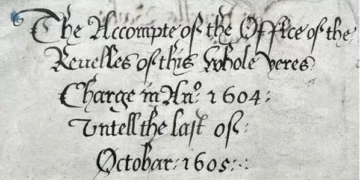 The Accompte of the Office of the
Reuelles of this whole yeres
Charge in Ano: 1604:
Untell the last of:
Octobar: 1605: